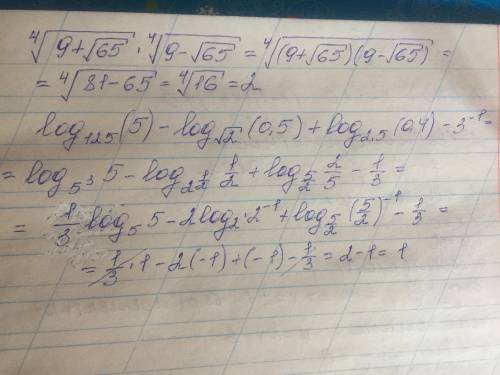 ⁴√(9+√65) · ⁴√(9-√65) = ⁴√((9+√65)(9-√65)) =
= ⁴√(81-65) = ⁴√16 = 2
log₁₂₅(5) - log_√2 (0,5) + log₂,₅ (0,4) - 3⁻¹ =
= log_5³ 5 - log_2^(1/2) 1/2 + log_5/2 2/5 - 1/3 =
= 1/3 log₅ 5 - 2log₂ 2⁻¹ + log_5/2 (5/2)⁻¹ - 1/3 =
= 1/3 · 1 - 2(-1) + (-1) - 1/3 = 2-1 = 1